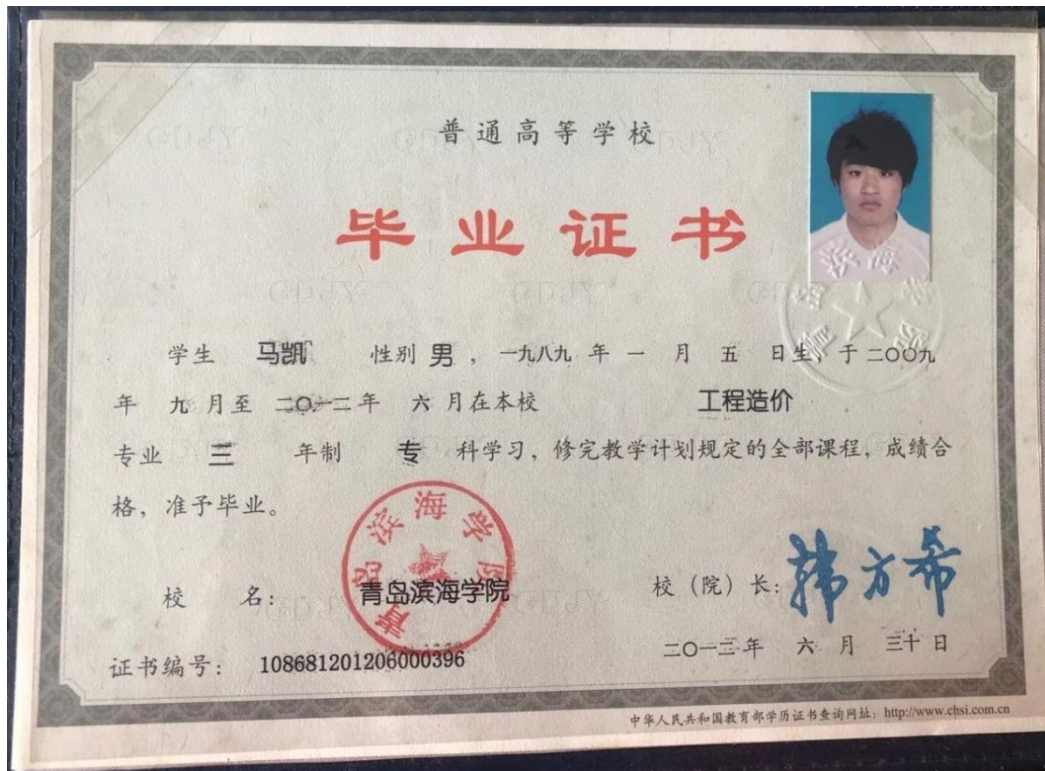 普通高等学校
毕业证书
学生 马凯 性别 男，一九八九 年 一 月 五 日生，于二〇〇九
年 九 月至 二〇一二年 六 月在本校 工程造价
专业 三 年制 专 科学习，修完教学计划规定的全部课程，成绩合
格，准予毕业。
青岛滨海学院
校 名： 青岛滨海学院
校（院）长：韩方希
二〇一二年 六 月 三十 日
证书编号： 108681201206000396
中华人民共和国教育部学历证书查询网址：http://www.chsi.com.cn